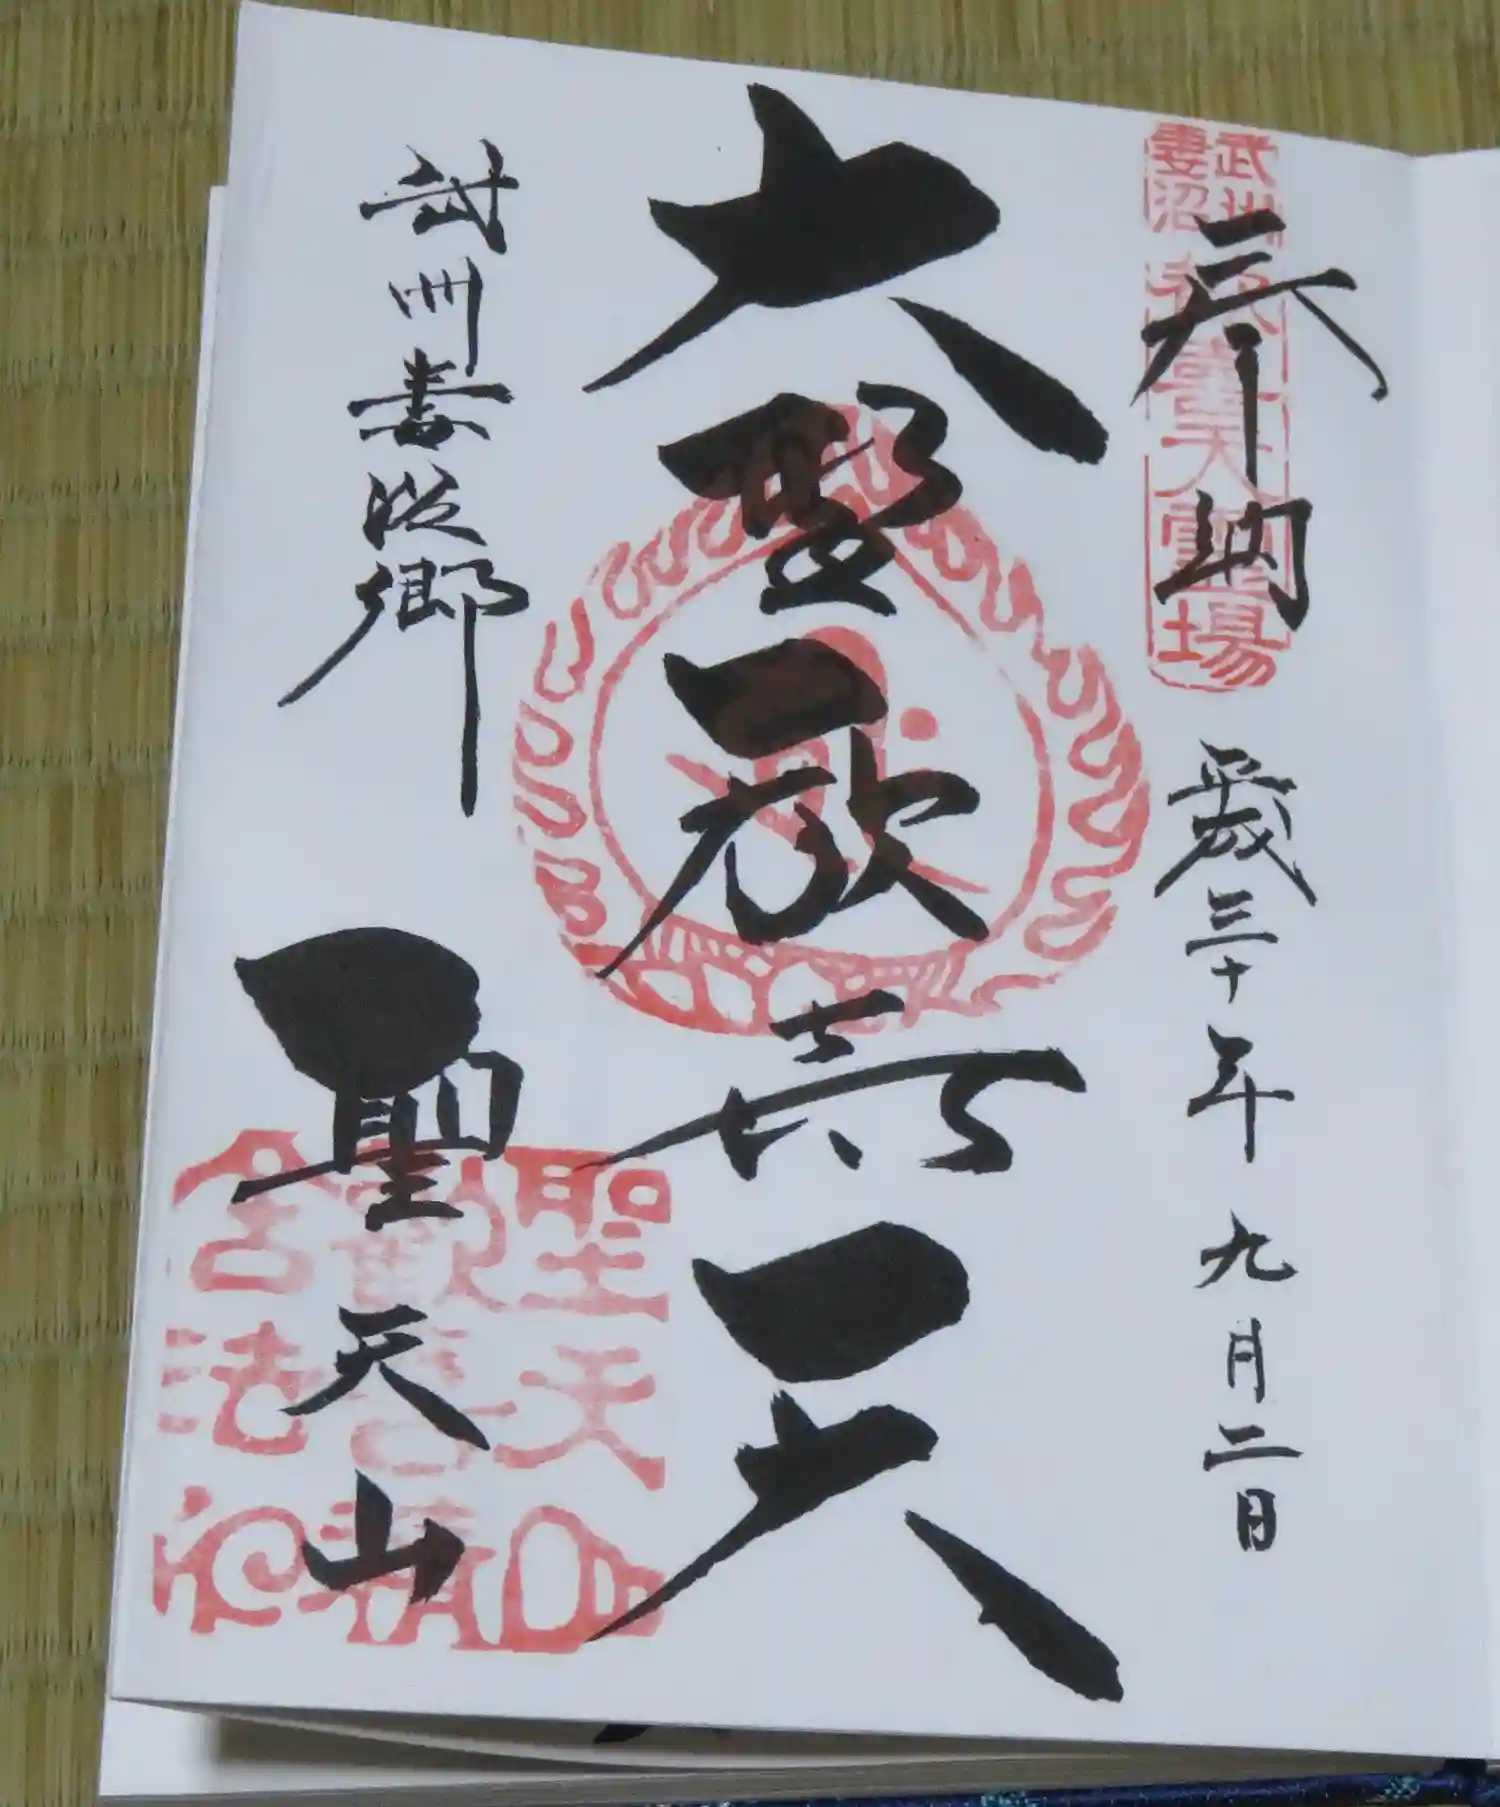 武州
妻沼
歓喜天靈場
奉納
平成三十年九月二日
大聖歓喜天
武州妻沼郷
聖天山
聖天山
歡喜精
舎法印